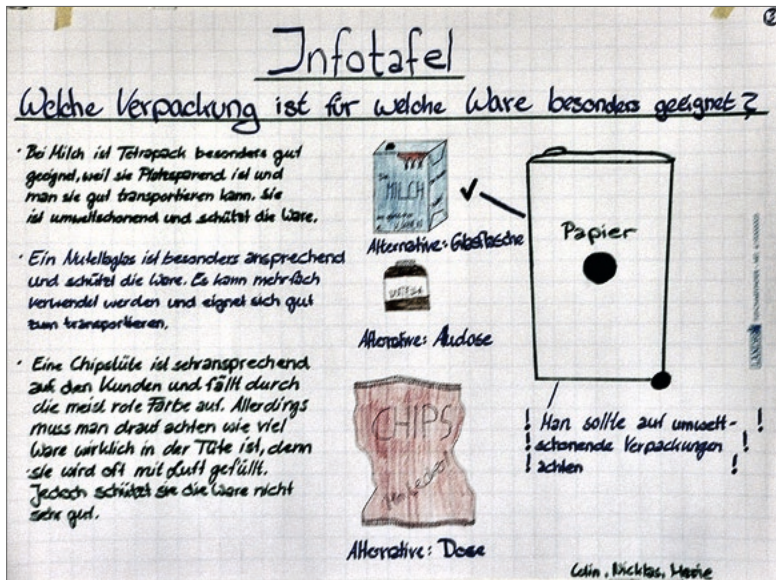 ②
Infotafel
Welche Verpackung ist für welche Ware besonders geeignet?
· Bei Milch ist Tetrapack besonders gut
geeignet, weil sie Platzsparend ist und
man sie gut transportieren kann. Sie
ist umweltschonend und schützt die Ware.
· Ein Nutellaglas ist besonders ansprechend
und schützt die Ware. Es kann mehrfach
verwendet werden und eignet sich gut
zum transportieren.
· Eine Chipstüte ist sehr ansprechend
auf den Kunden und fällt durch
die meist rote Farbe auf. Allerdings
muss man drauf achten wie viel
Ware wirklich in der Tüte ist, denn
sie wird oft mit Luft gefüllt.
Jedoch schützt sie die Ware nicht
sehr gut.
MILCH
Alternative: Glasflasche
Alternative: Aludose
CHIPS
Alternative: Dose
Papier
! Man sollte auf umwelt- !
! schonende Verpackungen !
! achten !
Colin, Nicklas,